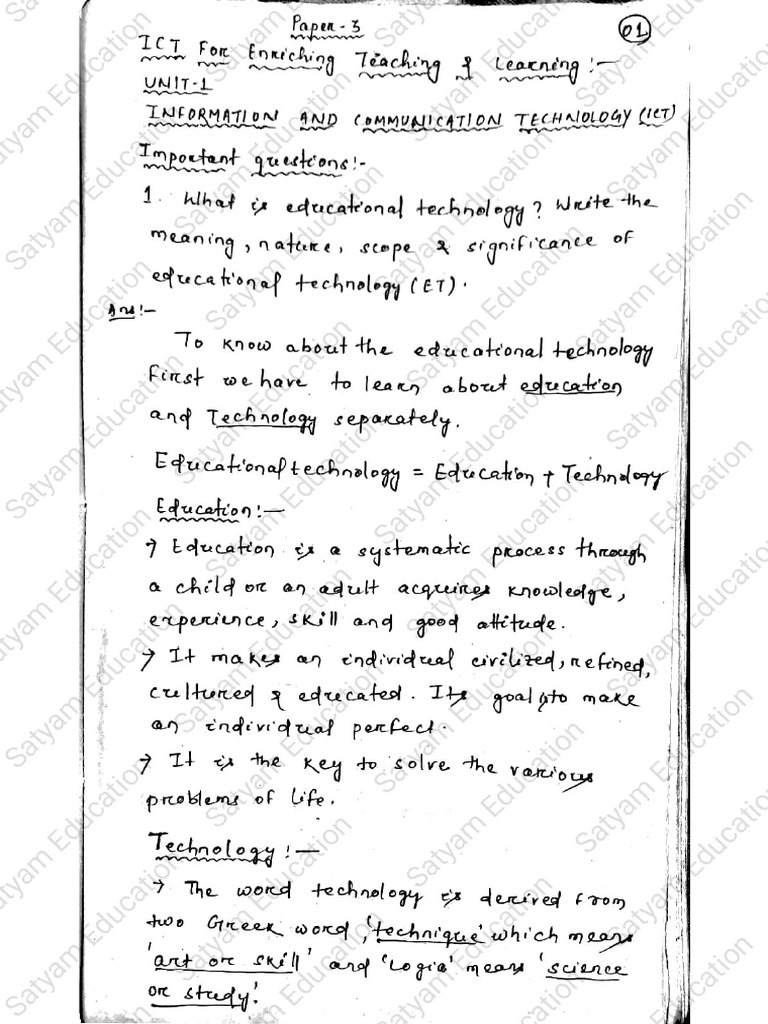 Paper-3
01
ICT For Enriching Teaching & Learning:-
UNIT-1
INFORMATION AND COMMUNICATION TECHNOLOGY (ICT)
Important questions:-
1. What is educational technology? Write the
meaning, nature, scope & significance of
educational technology (ET).
Ans:-
To know about the educational technology
first we have to learn about education
and Technology separately.
Educational technology = Education + Technology
Education:-
→ Education is a systematic process through
a child or an adult acquires knowledge,
experience, skill and good attitude.
→ It makes an individual civilized, refined,
cultured & educated. Its goal is to make
an individual perfect.
→ It is the key to solve the various
problems of life.
Technology:-
→ The word technology is derived from
two Greek word, 'technique' which means
'art or skill' and 'Logia' means 'science
or study'.
Satyam Education